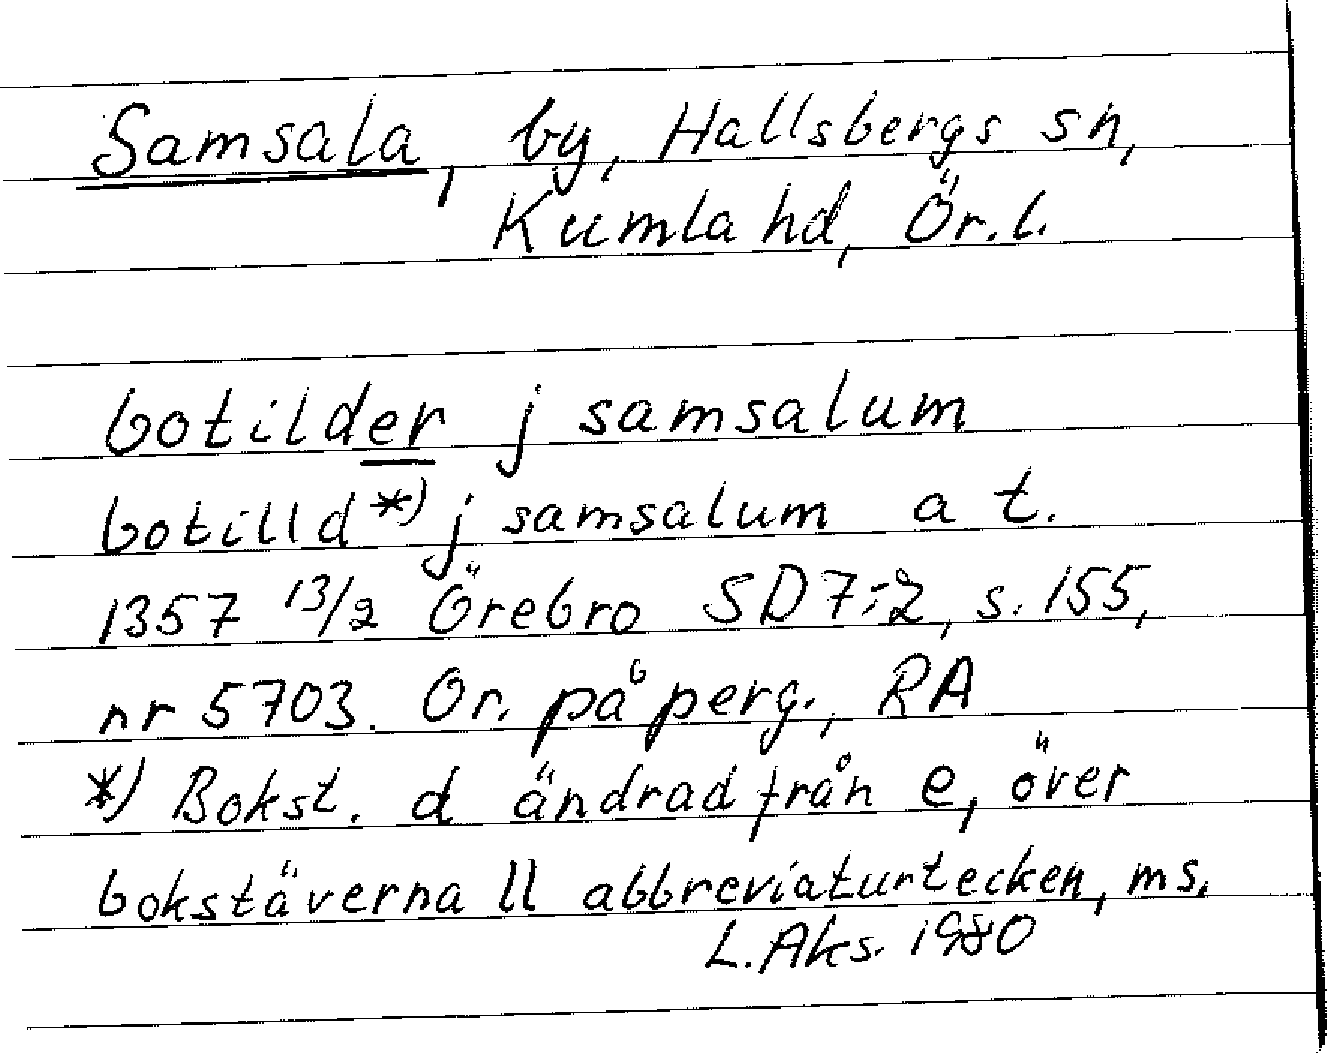 Samsala, by, Hallsbergs sn,
Kumla hd, Ör. l.
botilder j samsalum
botilld *) j samsalum a t.
1357 13/2 Örebro SD 7:2, s. 155,
nr 5703. Or. på perg., RA
*) Bokst. d ändrad från e, över
bokstäverna ll abbreviaturtecken, ms.
L. Aks. 1980